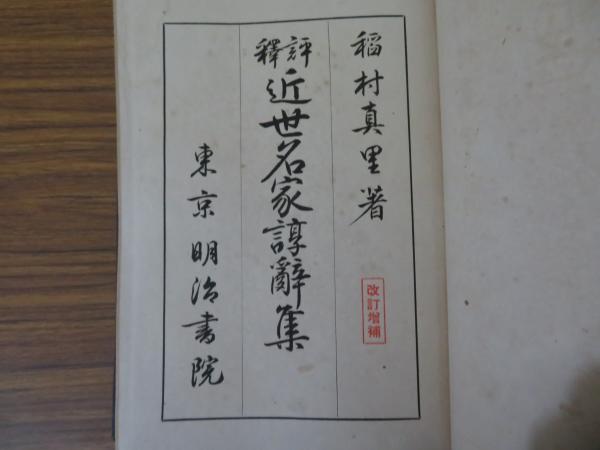 稻村真里著
改訂増補
評釋
近世名家諄辭集
東京明治書院